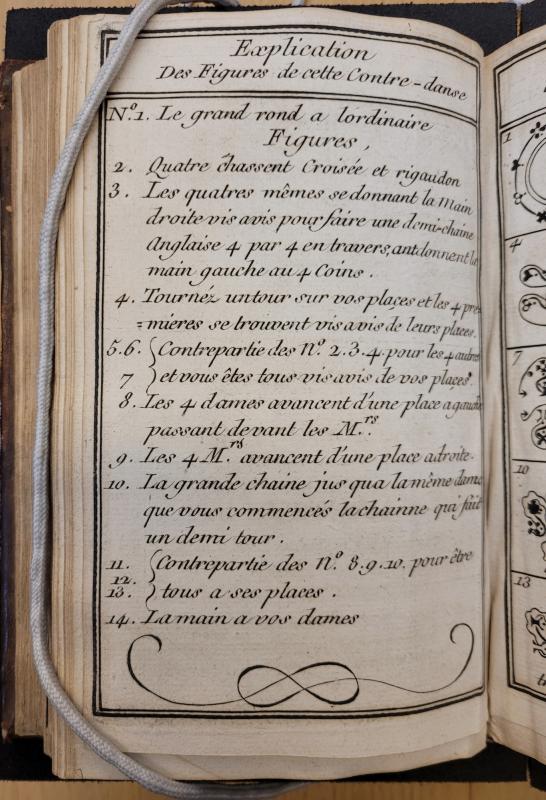 Explication
Des Figures de cette Contre-danse
N.º1. Le grand rond a lordinaire
Figures,
2. Quatre chassent Croisée et rigaudon
3. Les quatres mêmes se donnant la Main
droite vis avis pour faire une demi-chaine
Anglaise 4 par 4 en travers, ant donnent la
main gauche au 4 Coins.
4. Tournéz un tour sur vos places et les 4 pre
=mieres se trouvent vis avis de leurs places.
5.6. Contrepartie des N.º 2.3.4. pour les 4 autres
7 et vous êtes tous vis avis de vos places.
8. Les 4 dames avancent d'une place a gauche
passant devant les M.rs
9. Les 4 M.rs avancent d'une place adroite.
10. La grande chaine jus qua la même dame
que vous commencés la chainne qui fait
un demi tour.
11. Contrepartie des N.º 8.9.10. pour être
12.
13. tous a ses places.
14. La main a vos dames
1
4
7
10
13